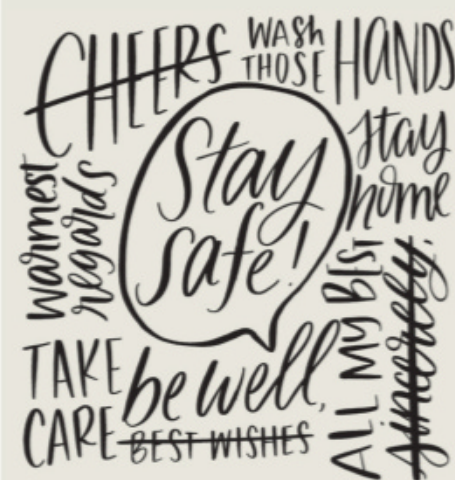 CHEERS
WASH
THOSE
HANDS
stay
home
Stay
safe!
warmest
regards
TAKE
CARE
be well,
BEST WISHES
ALL MY BEST
sincerely,